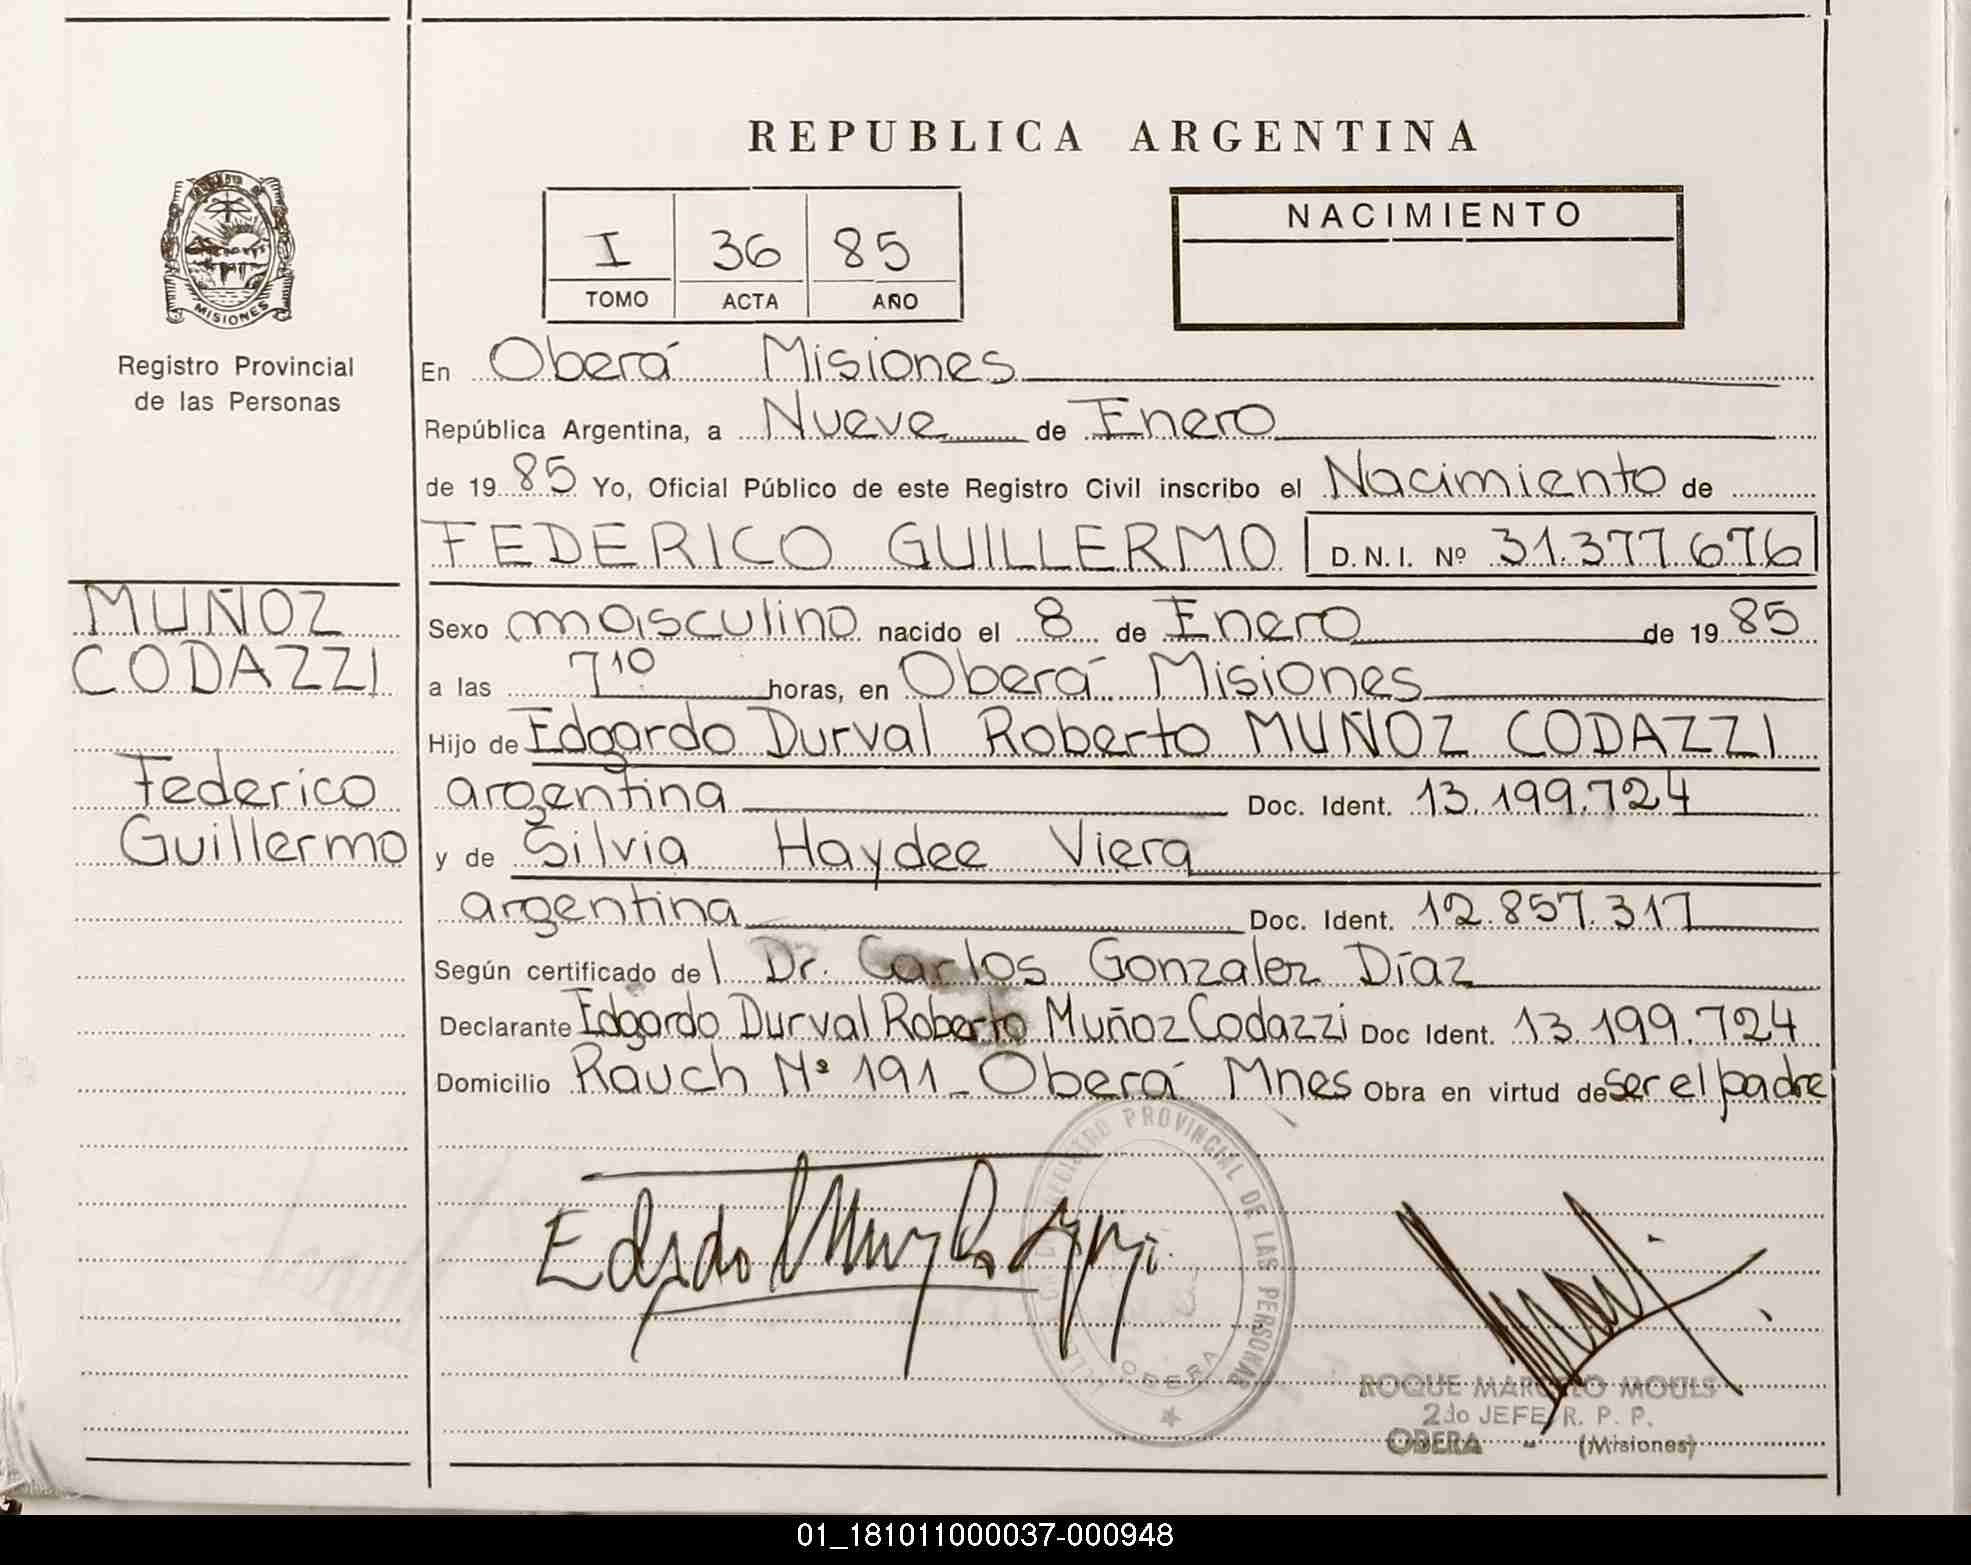 REPUBLICA ARGENTINA
NACIMIENTO
I 36 85
TOMO ACTA AÑO
MISIONES
Registro Provincial
de las Personas
En Oberá Misiones
República Argentina, a Nueve de Enero
de 1985 Yo, Oficial Público de este Registro Civil inscribo el Nacimiento de
FEDERICO GUILLERMO D.N.I. Nº 31.377.676
MUÑOZ
CODAZZI
Federico
Guillermo
Sexo masculino nacido el 8 de Enero de 1985
a las 7 10 horas, en Oberá Misiones
Hijo de Edgardo Durval Roberto MUÑOZ CODAZZI
argentina Doc. Ident. 13.199.724
y de Silvia Haydee Viera
argentina Doc. Ident. 12.857.317
Según certificado del Dr. Carlos Gonzalez Díaz
Declarante Edgardo Durval Roberto Muñoz Codazzi Doc Ident. 13.199.724
Domicilio Rauch Nº 191 - Oberá Mnes Obra en virtud de ser el padre
REGISTRO PROVINCIAL DE LAS PERSONAS
OBERA
ROQUE MARCELO MOULS
2do JEFE R. P. P.
OBERA - (Misiones)
01_181011000037-000948